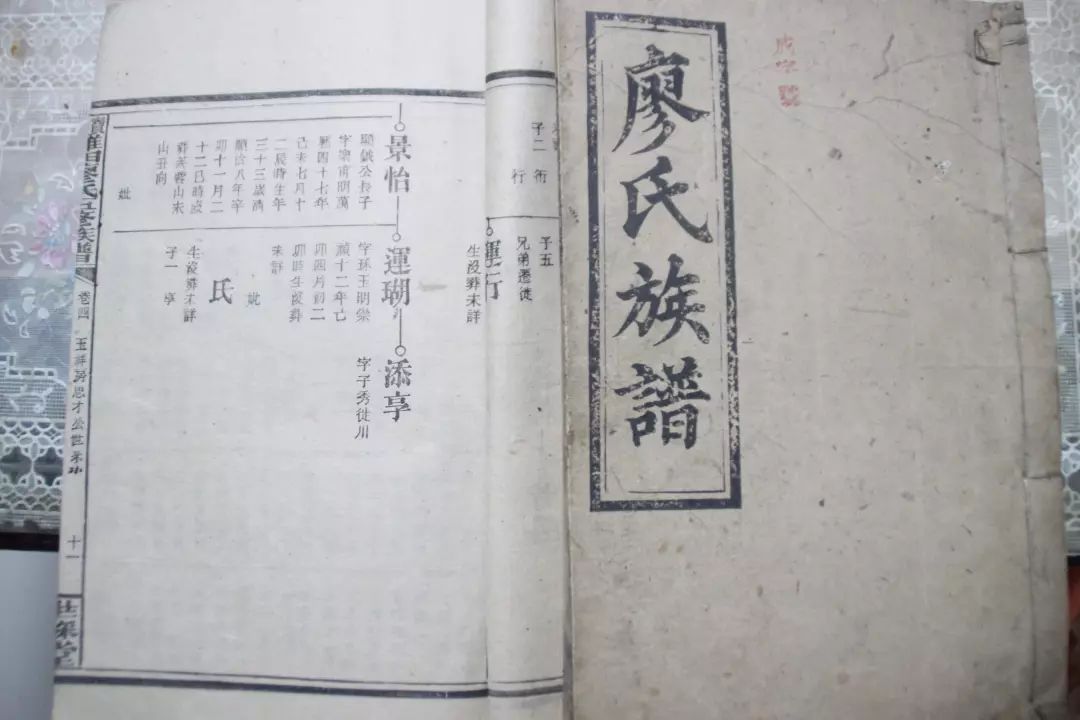 廖氏族譜
子二 衍
行
子五
兄弟遷徙
運行
生歿葬未詳
景怡
顯猷公長子
字樂甫明萬
曆四十七年
己未七月十
二辰時生年
三十三歲清
順治八年辛
卯十一月二
十二巳時歿
葬芙蓉山未
山丑向
妣
運瑚
字珠玉明崇
禎十二年己
卯四月初二
卯時生歿葬
未詳
妣
氏
生歿葬未詳
子一 享
添享
字子秀徙川
廖氏五修族譜
卷四
玉祥房思才公世系
十一
世綵堂